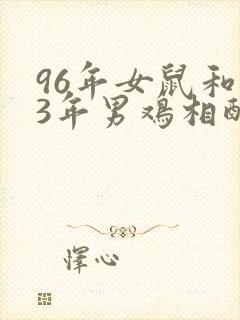 96年女鼠和
3年男鸡相配
怿心